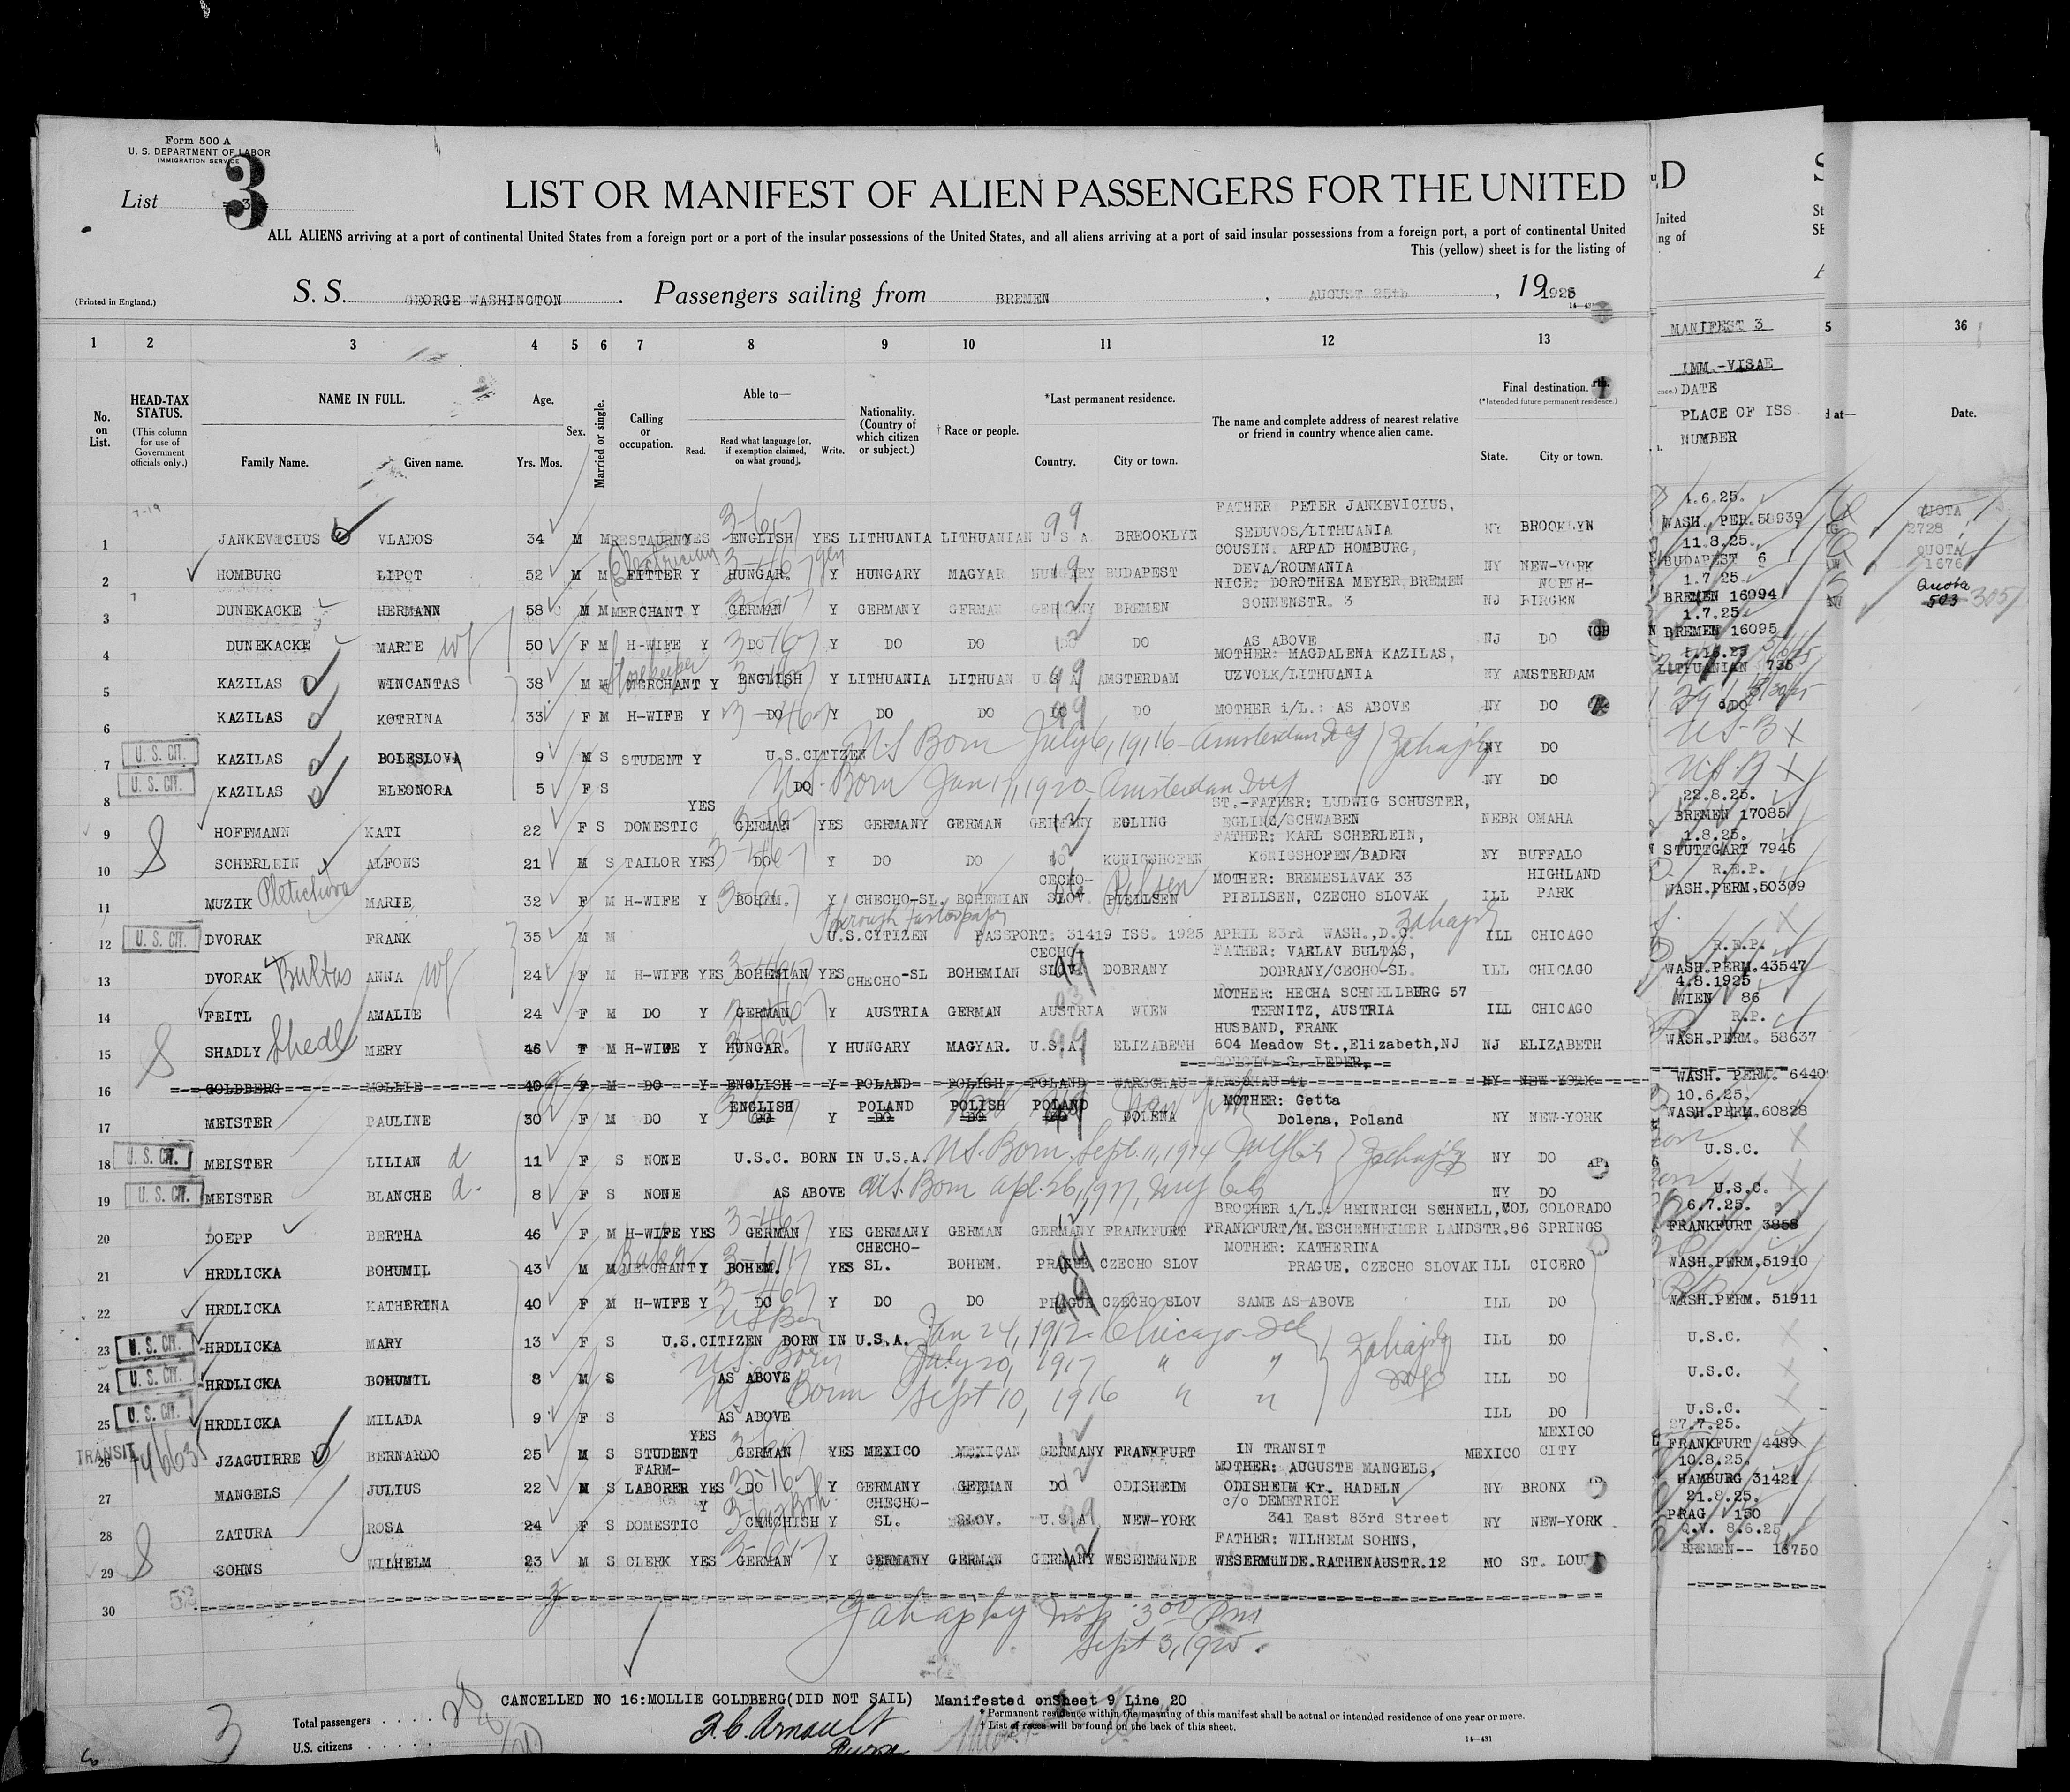 Form 500 A
U. S. DEPARTMENT OF LABOR
IMMIGRATION SERVICE
List 3
3
LIST OR MANIFEST OF ALIEN PASSENGERS FOR THE UNITED
ALL ALIENS arriving at a port of continental United States from a foreign port or a port of the insular possessions of the United States, and all aliens arriving at a port of said insular possessions from a foreign port, a port of continental United
This (yellow) sheet is for the listing of
(Printed in England.)
S. S. GEORGE WASHINGTON . Passengers sailing from BREMEN , AUGUST 25th , 19 1925
1 2 3 4 5 6 7 8 9 10 11 12 13
No. on List.
HEAD-TAX STATUS.
(This column for use of Government officials only.)
NAME IN FULL.
Family Name. Given name.
Age.
Yrs. Mos.
Sex.
Married or single.
Calling or occupation.
Able to—
Read. Read what language [or, if exemption claimed, on what ground]. Write.
Nationality. (Country of which citizen or subject.)
† Race or people.
*Last permanent residence.
Country. City or town.
The name and complete address of nearest relative or friend in country whence alien came.
Final destination.
(*Intended future permanent residence.)
State. City or town.
MANIFEST 3
IMM.-VISAE
DATE
PLACE OF ISS
NUMBER
36
Date.
FATHER PETER JANKEVICIUS, 1.6.25.
1 JANKEVICIUS VLADOS 34 M M RESTAURN YES ENGLISH YES LITHUANIA LITHUANIAN U S A BREOOKLYN SEDUVOS/LITHUANIA NY BROOKLYN WASH. PER.58939 QUOTA 2728
COUSIN: ARPAD HOMBURG, 11.8.25.
2 HOMBURG LIPOT 52 M M Electrician FITTER Y HUNGAR. Y HUNGARY MAGYAR HUNGARY BUDAPEST DEVA/ROUMANIA NY NEW-YORK BUDAPEST 6 QUOTA 1676
NICE: DOROTHEA MEYER BREMEN NORTH- 1.7.25.
3 DUNEKACKE HERMANN 58 M M MERCHANT Y GERMAN Y GERMANY GERMAN GERMANY BREMEN SONNENSTR. 3 NJ BIRGEN BREMEN 16094 Quota 503 305
1.7.25.
4 DUNEKACKE MARIE wf 50 F M H-WIFE Y DO Y DO DO DO DO AS ABOVE NJ DO BREMEN 16095
MOTHER: MAGDALENA KAZILAS,
5 KAZILAS WINCANTAS 38 M M MERCHANT Y ENGLISH Y LITHUANIA LITHUAN U S A AMSTERDAM UZVOLK/LITHUANIA NY AMSTERDAM LITHUANIAN 735
6 KAZILAS KOTRINA 33 F M H-WIFE Y DO Y DO DO DO DO MOTHER i/L.: AS ABOVE NY DO DO
7 U. S. CIT. KAZILAS BOLESLOVA 9 M S STUDENT Y U.S.CITIZEN US Born July 6, 1916 - Amsterdam NY DO US-B X
8 U. S. CIT. KAZILAS ELEONORA 5 F S DO US. Born Jan 17, 1920 - Amsterdam NY DO US.B X
YES ST.-FATHER: LUDWIG SCHUSTER, 22.8.25.
9 HOFFMANN KATI 22 F S DOMESTIC GERMAN YES GERMANY GERMAN GERMANY EGLING EGLING/SCHWABEN NEBR OMAHA BREMEN 17085
FATHER: KARL SCHERLEIN, 1.8.25.
10 SCHERLEIN ALFONS 21 M S TAILOR YES DO Y DO DO DO KONIGSHOFEN KONIGSHOFEN/BADEN NY BUFFALO STUTTGART 7946
CECHO- MOTHER: BREMESLAVAK 33 HIGHLAND R.E.P.
11 MUZIK Pletichova MARIE 32 F M H-WIFE Y BOHEM. Y CHECHO-SL. BOHEMIAN SLOV. PIELLSEN Pilsen PIELLSEN, CZECHO SLOVAK ILL PARK WASH.PERM.50309
12 U. S. CIT. DVORAK FRANK 35 M M U.S.CITIZEN PASSPORT: 31419 ISS. 1925 APRIL 23rd WASH.,D.C. ILL CHICAGO
CECHO- FATHER: VARLAV BULTAS, R.E.P.
13 DVORAK Bultas ANNA wf 24 F M H-WIFE YES BOHEMIAN YES CHECHO-SL BOHEMIAN SLOV. DOBRANY DOBRANY/CECHO-SL. ILL CHICAGO WASH.PERM.43547
MOTHER: HECHA SCHNELLBURG 57 4.8.1925
14 FEITL AMALIE 24 F M DO Y GERMAN Y AUSTRIA GERMAN AUSTRIA WIEN TERNITZ, AUSTRIA ILL CHICAGO WIEN 86
HUSBAND, FRANK R.P.
15 SHADLY Shedl MERY 46 F M H-WIFE Y HUNGAR. Y HUNGARY MAGYAR. U.S.A. ELIZABETH 604 Meadow St.,Elizabeth,NJ NJ ELIZABETH WASH.PERM. 58637
COUSIN: S. LEDER,
16 GOLDBERG MOLLIE 40 F M DO Y ENGLISH Y POLAND POLISH POLAND WARSCHAU WARSCHAU 41 NY NEW-YORK WASH. PERM. 6440
ENGLISH POLAND POLISH POLAND MOTHER: Getta 10.6.25.
17 MEISTER PAULINE 30 F M DO Y DO Y DO DO DO DOLENA Dolena, Poland NY NEW-YORK WASH.PERM.60828
18 U. S. CIT. MEISTER LILIAN d 11 F S NONE U.S.C. BORN IN U.S.A. US. Born Sept. 11, 1914 NY DO U.S.C.
19 U. S. CIT. MEISTER BLANCHE d 8 F S NONE AS ABOVE US. Born Apl. 26, 1917, NY DO U.S.C.
BROTHER i/L.: HEINRICH SCHNELL, COL COLORADO 6.7.25.
20 DOEPP BERTHA 46 F M H-WIFE YES GERMAN YES GERMANY GERMAN GERMANY FRANKFURT FRANKFURT/M.ESCHENHEIMER LANDSTR.86 SPRINGS FRANKFURT 3858
CHECHO- MOTHER: KATHERINA
21 HRDLICKA BOHUMIL 43 M M MERCHANT Y BOHEM. YES SL. BOHEM. PRAGUE CZECHO SLOV PRAGUE, CZECHO SLOVAK ILL CICERO WASH.PERM.51910
22 HRDLICKA KATHERINA 40 F M H-WIFE Y DO Y DO DO PRAGUE CZECHO SLOV SAME AS ABOVE ILL DO WASH.PERM. 51911
23 U. S. CIT. HRDLICKA MARY 13 F S U.S.CITIZEN BORN IN U.S.A. US Born Jan 24, 1912 - Chicago Ill ILL DO U.S.C.
24 U. S. CIT. HRDLICKA BOHUMIL 8 M S AS ABOVE US. Born July 20, 1917 " " ILL DO U.S.C.
25 U. S. CIT. HRDLICKA MILADA 9 F S AS ABOVE US Born Sept 10, 1916 " " ILL DO U.S.C.
YES MEXICO 27.7.25.
26 TRANSIT JZAGUIRRE BERNARDO 25 M S STUDENT GERMAN YES MEXICO MEXICAN GERMANY FRANKFURT IN TRANSIT MEXICO CITY FRANKFURT 4489
FARM- MOTHER: AUGUSTE MANGELS, 10.8.25.
27 MANGELS JULIUS 22 M S LABORER YES DO Y GERMANY GERMAN DO ODISHEIM ODISHEIM Kr. HADELN NY BRONX HAMBURG 31421
Y CHECHO- c/o DEMETRICH 21.8.25.
28 ZATURA ROSA 24 F S DOMESTIC CHECHISH Y SL. SLOV. U.S.A NEW-YORK 341 East 83rd Street NY NEW-YORK PRAG 150
FATHER: WILHELM SOHNS, Q.V. 8.6.25
29 SOHNS WILHELM 23 M S CLERK YES GERMAN Y GERMANY GERMAN GERMANY WESERMUNDE WESERMUNDE.RATHENAUSTR.12 MO ST. LOUI BREMEN-- 16750
30
3 00 Pm
Sept 3, 1925.
CANCELLED NO 16:MOLLIE GOLDBERG(DID NOT SAIL) Manifested onSheet 9 Line 20
* Permanent residence within the meaning of this manifest shall be actual or intended residence of one year or more.
† List of races will be found on the back of this sheet.
Total passengers . . . .
U.S. citizens . . . . .
3
14—431